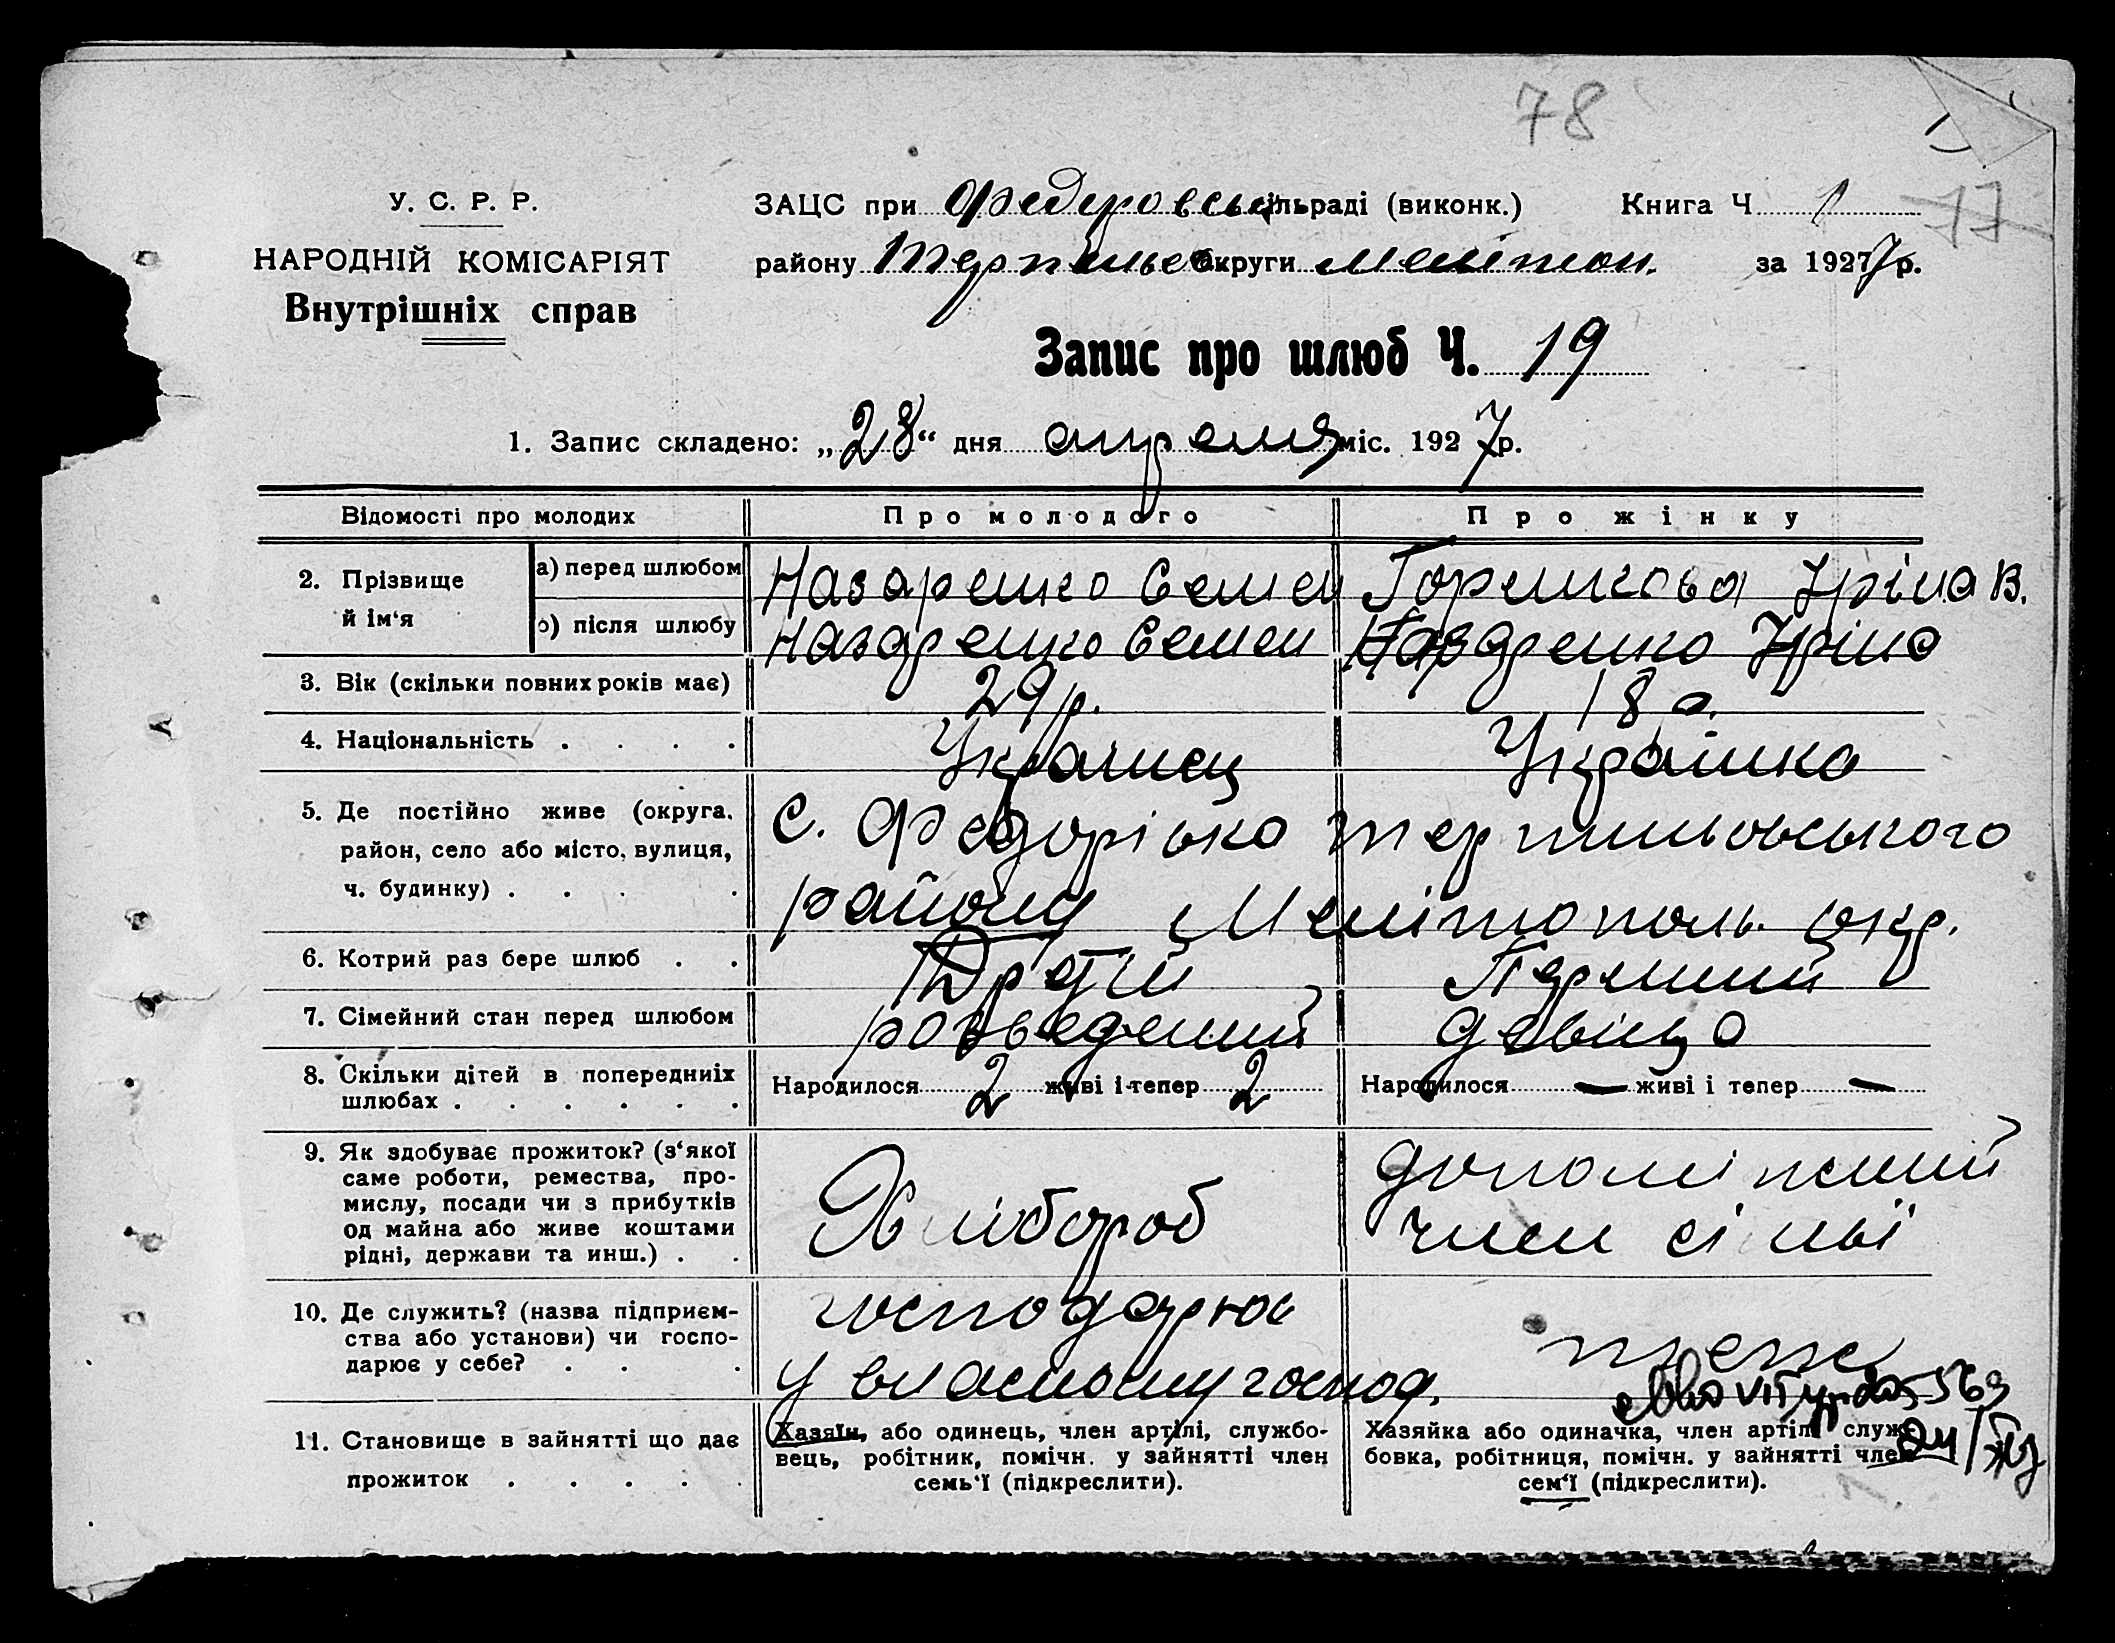 78
У. С. Р. Р.
НАРОДНІЙ КОМІСАРІЯТ
Внутрішніх справ
ЗАЦС при Федеровськ сільраді (виконк.) Книга Ч 1
77
району Терпеньев округи Мелітоп. за 1927 7р.
Запис про шлюб Ч. 19
1. Запис складено: „28“ дня апреля міс. 1927р.
Відомості про молодих Про молодого Про жінку
2. Прізвище й ім‘я
а) перед шлюбом Назаренко Семен Горенкова Іріна В.
б) після шлюбу Назаренко Семен Назаренко Іріна
3. Вік (скільки повних років має) 29 р. 18 р.
4. Національність . . . . Українец Українка
5. Де постійно живе (округа, район, село або місто, вулиця, ч. будинку) . . . .
С. Федорівка терпиньовського
району Мелітополь. окр.
6. Котрий раз бере шлюб . . Другий Перший
7. Сімейний стан перед шлюбом розведений девица
8. Скільки дітей в попередниіх шлюбах . . . . . .
Народилося 2 живі і тепер 2 Народилося — живі і тепер —
9. Як здобуває прожиток? (з‘якої саме роботи, ремества, промислу, посади чи з прибутків од майна або живе коштами рідні, держави та инш.) . .
Хлібороб
допоміжний
член сімьї
10. Де служить? (назва підприємства або установи) чи господарює у себе? . . .
господарює
у власному господ.
теж
11. Становище в зайнятті що дає прожиток . . . . .
Хазяїн, або одинець, член артілі, службовець, робітник, помічн. у зайнятті член семь‘ї (підкреслити).
Хазяйка або одиначка, член артілі службовка, робітниця, помічн. у зайнятті член сем‘ї (підкреслити).